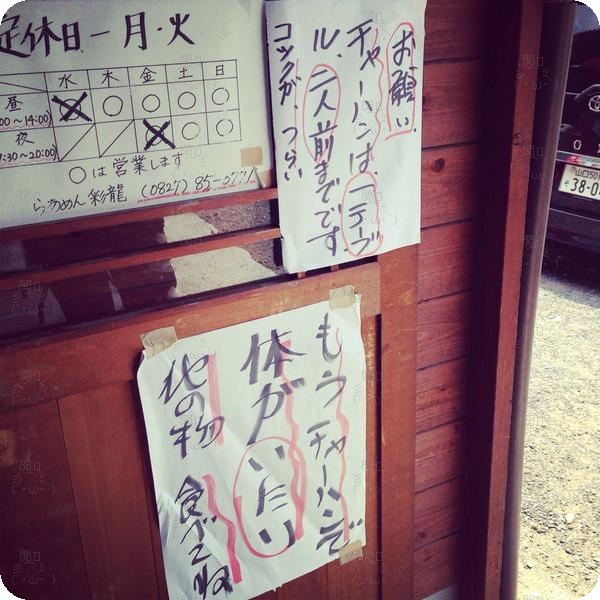 定休日－月・火
水 木 金 土 日
昼
00～14:00) × ○ ○ ○ ○
夜
7:30～20:00) × ○ ○
○は営業します
らぁめん 彩龍 (0827) 85-0771
お願い
チャーハンは、一テーブ
ル、二人前までです。
コックが、つらい
もうチャーハンで
体がいたい
他の物 食べてね
山口 501
38-0